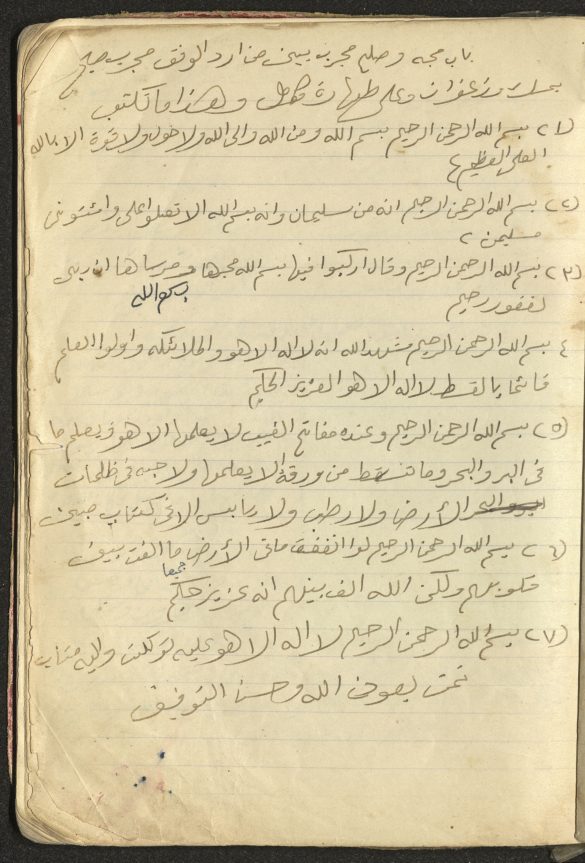 باب محبه وصلح مجرب بيين من ارد الوفق مجرب صحيح
وزعفران وعلى طهارة وهذا ما تكتب
(١) بسم الله الرحمن الرحيم بسم الله ومن الله والى الله ولا حول ولا قوة الا بالله
العلى العظيم
(٢) بسم الله الرحمن الرحيم انه من سليمان وانه بسم الله الا تعلوا على وائتونى
مسلمين
(٣) بسم الله الرحمن الرحيم وقال اركبوا فيها بسم الله مجرها ومرساها ان ربى
بسم الله
لغفور رحيم
٤ بسم الله الرحمن الرحيم شهد الله انه لا اله الا هو والملائكه واولوا العلم
قائما بالقسط لا اله الا هو العزيز الحكيم
(٥) بسم الله الرحمن الرحيم وعنده مفاتح الغيب لا يعلمها الا هو ويعلم ما
فى البر والبحر وما تسقط من ورقة الا يعلمها ولا حبه فى ظلمات
الأرض ولا رطب ولا يابس الا فى كتاب مبين
(٦) بسم الله الرحمن الرحيم لو انفقت ما فى الأرض ما الفت بين
جميعا
قلوبهم ولكن الله الف بينهم انه عزيز حكيم
(٧) بسم الله الرحمن الرحيم لا اله الا هو عليه توكلت واليه متاب
تمت بعون الله وحسن التوفيق